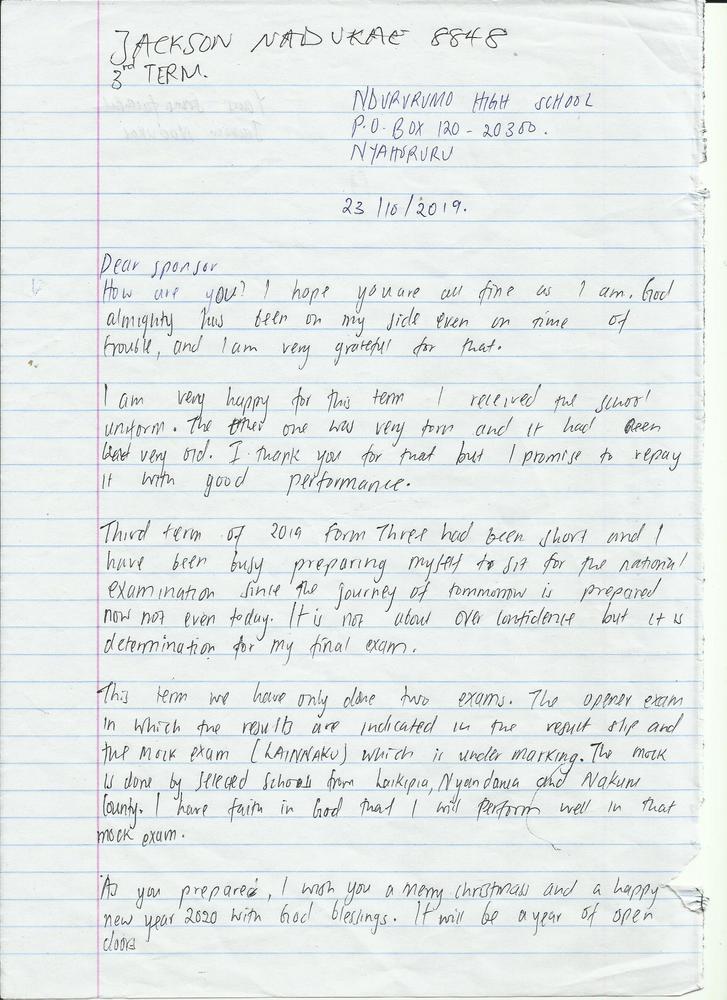 JACKSON NADUKAE 8848
3rd TERM.
NDURURUMO HIGH SCHOOL
P.O. BOX 120 - 20300.
NYAHURURU
23/10/2019.
Dear sponsor
How are you? I hope you are all fine as I am. God
almighty has been on my side even on time of
trouble, and I am very grateful for that.
I am very happy for this term I received the school
uniform. The other one was very torn and it had been
very old. I thank you for that but I promise to repay
it with good performance.
Third term of 2019 Form Three had been short and I
have been busy preparing myself to sit for the national
examination since the journey of tommorow is prepared
now not even today. It is not about over confidence but it is
determination for my final exam.
This term we have only done two exams. The opener exam
in which the results are indicated in the result slip and
the mock exam (LAINNAKU) which is under marking. The mock
is done by seleced schools from Laikipia, Nyandarua and Nakuru
County. I have faith in God that I will perform well in that
mock exam.
As you prepared, I wish you a merry christmass and a happy
new year 2020 with God blessings. It will be a year of open
doors